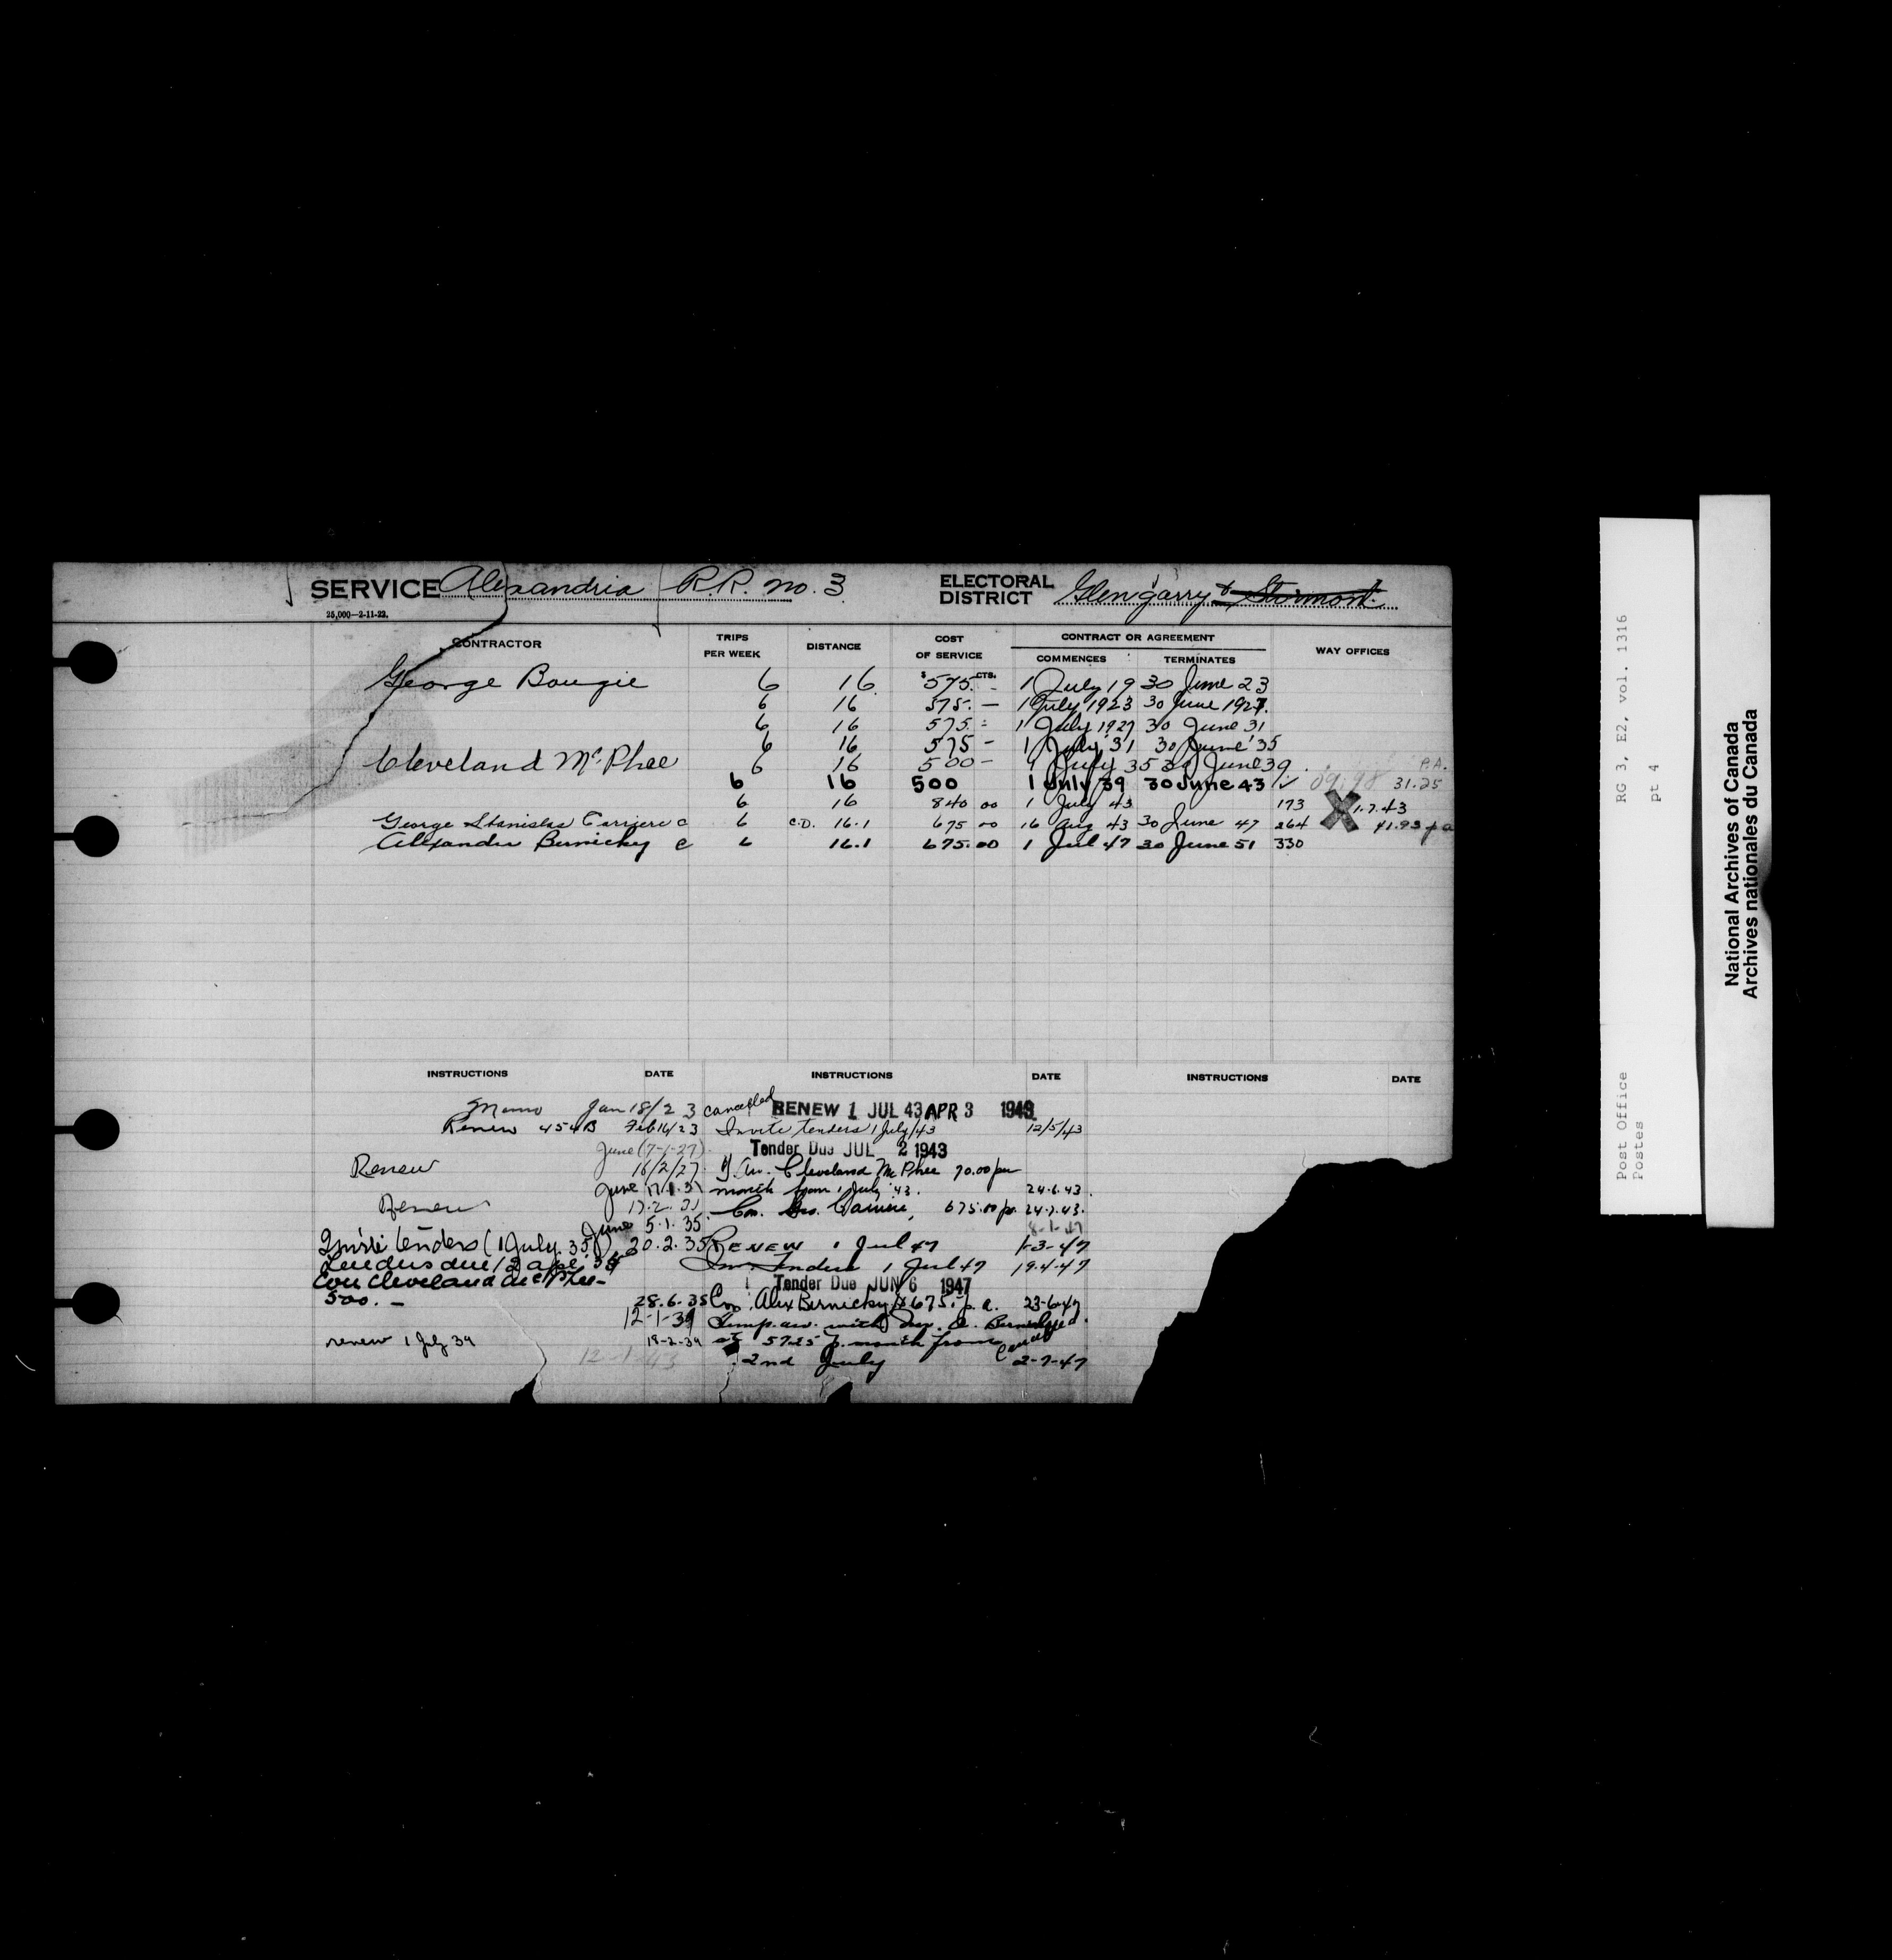 SERVICE Alexandria R.R. no. 3 ELECTORAL DISTRICT Glengarry & Stormont
25,000—2-11-22.
CONTRACTOR TRIPS PER WEEK DISTANCE COST OF SERVICE CONTRACT OR AGREEMENT WAY OFFICES
COMMENCES TERMINATES
$ CTS.
George Bougie 6 16 575. - 1 July 19 30 June 23
6 16 575. — 1 July 1923 30 June 1927.
6 16 575. - 1 July 1927 30 June 31
6 16 575 - 1 July '31 30 June '35
Cleveland McPhee 6 16 500 - 1 July 35 30 June 39. P.A.
6 16 500 1 July 39 30 June 43 31.25
6 16 840 00 1 July 43 173 X 1.7.43
George Stanislas Carriere c 6 C.D. 16.1 675 00 16 Aug 43 30 June 47 264 41.93 pa
Alexander Bernicky c 6 16.1 675.00 1 Jul 47 30 June 51 330
INSTRUCTIONS DATE INSTRUCTIONS DATE INSTRUCTIONS DATE
Memo Jan 18/23 cancelled RENEW 1 JUL 43 APR 3 1943
Renew 454B Feb 16/23 Invite tenders 1 July/43 12/5/43
June (7-1-27) Tender Due JUL 2 1943
Renew 16/2/27 T.aw. Cleveland McPhee 70.00 per
June 17.1.31 month from 1 July '43. 24.6.43.
Renew 17.2.31 Con. Geo. Carriere, 675.00 pa. 24.7.43.
June 5.1.35. 8-1-47
Invite tenders (1 July 35) 20.2.35 RENEW 1 Jul 47 1-3-47
Tenders due 12 apl '35 Inv. Tenders 1 Jul 47 19.4.47
Con Cleveland McPhee- Tender Due JUN 6 1947
500. — 28.6.35 Con. Alex Bernicky @ 675. p.a. 23-6-47
12-1-39 Temp. aw. with
renew 1 July 39 18-2-39 at 57.25 p. month from
12-1-43 2nd July 2-7-47
RG 3, E2, vol. 1316
pt 4
Post Office
Postes
National Archives of Canada
Archives nationales du Canada